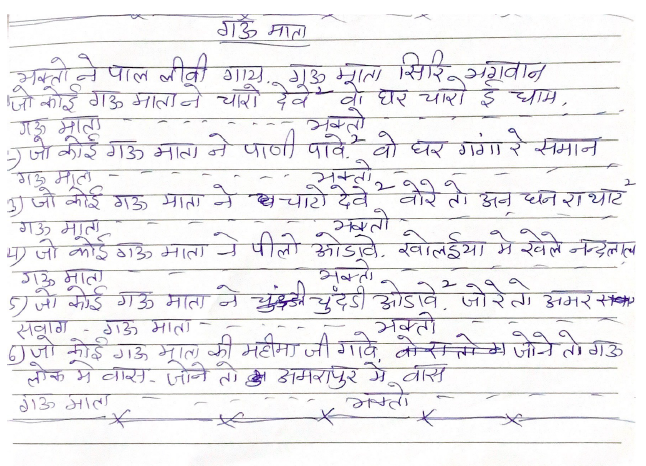 गऊ माता
भक्तो ने पाल लीवी गाय. गऊ माता सिरि भगवान
जो कोई गऊ माता ने चारो देवे² वो घर चारो ई धाम.
गऊ माता - - - - - - - - भक्तो
2) जो कोई गऊ माता ने पाणी पावे.² वो घर गंगा रे समान
गऊ माता - - - - - - - - भक्तो - - - -
3) जो कोई गऊ माता ने चाटो देवे² वोरे तो अन धन रा थाट²
गऊ माता - - - - - - - - भक्तो
4) जो कोई गऊ माता ने पीलो ओडावे. खोलईया मे खेले नन्दलाल
गऊ माता - - - - - - - - भक्तो
5) जो कोई गऊ माता ने चुंदडी ओडावे.² जोरे तो अमर
सवाग - गऊ माता - - - - - - - - भक्तो
6) जो कोई गऊ माता की महीमा जी गावे, जोने तो गऊ
लोक मे वास - जोने तो अमरापुर मे वास
गऊ माता - - - - - - - - भक्तो